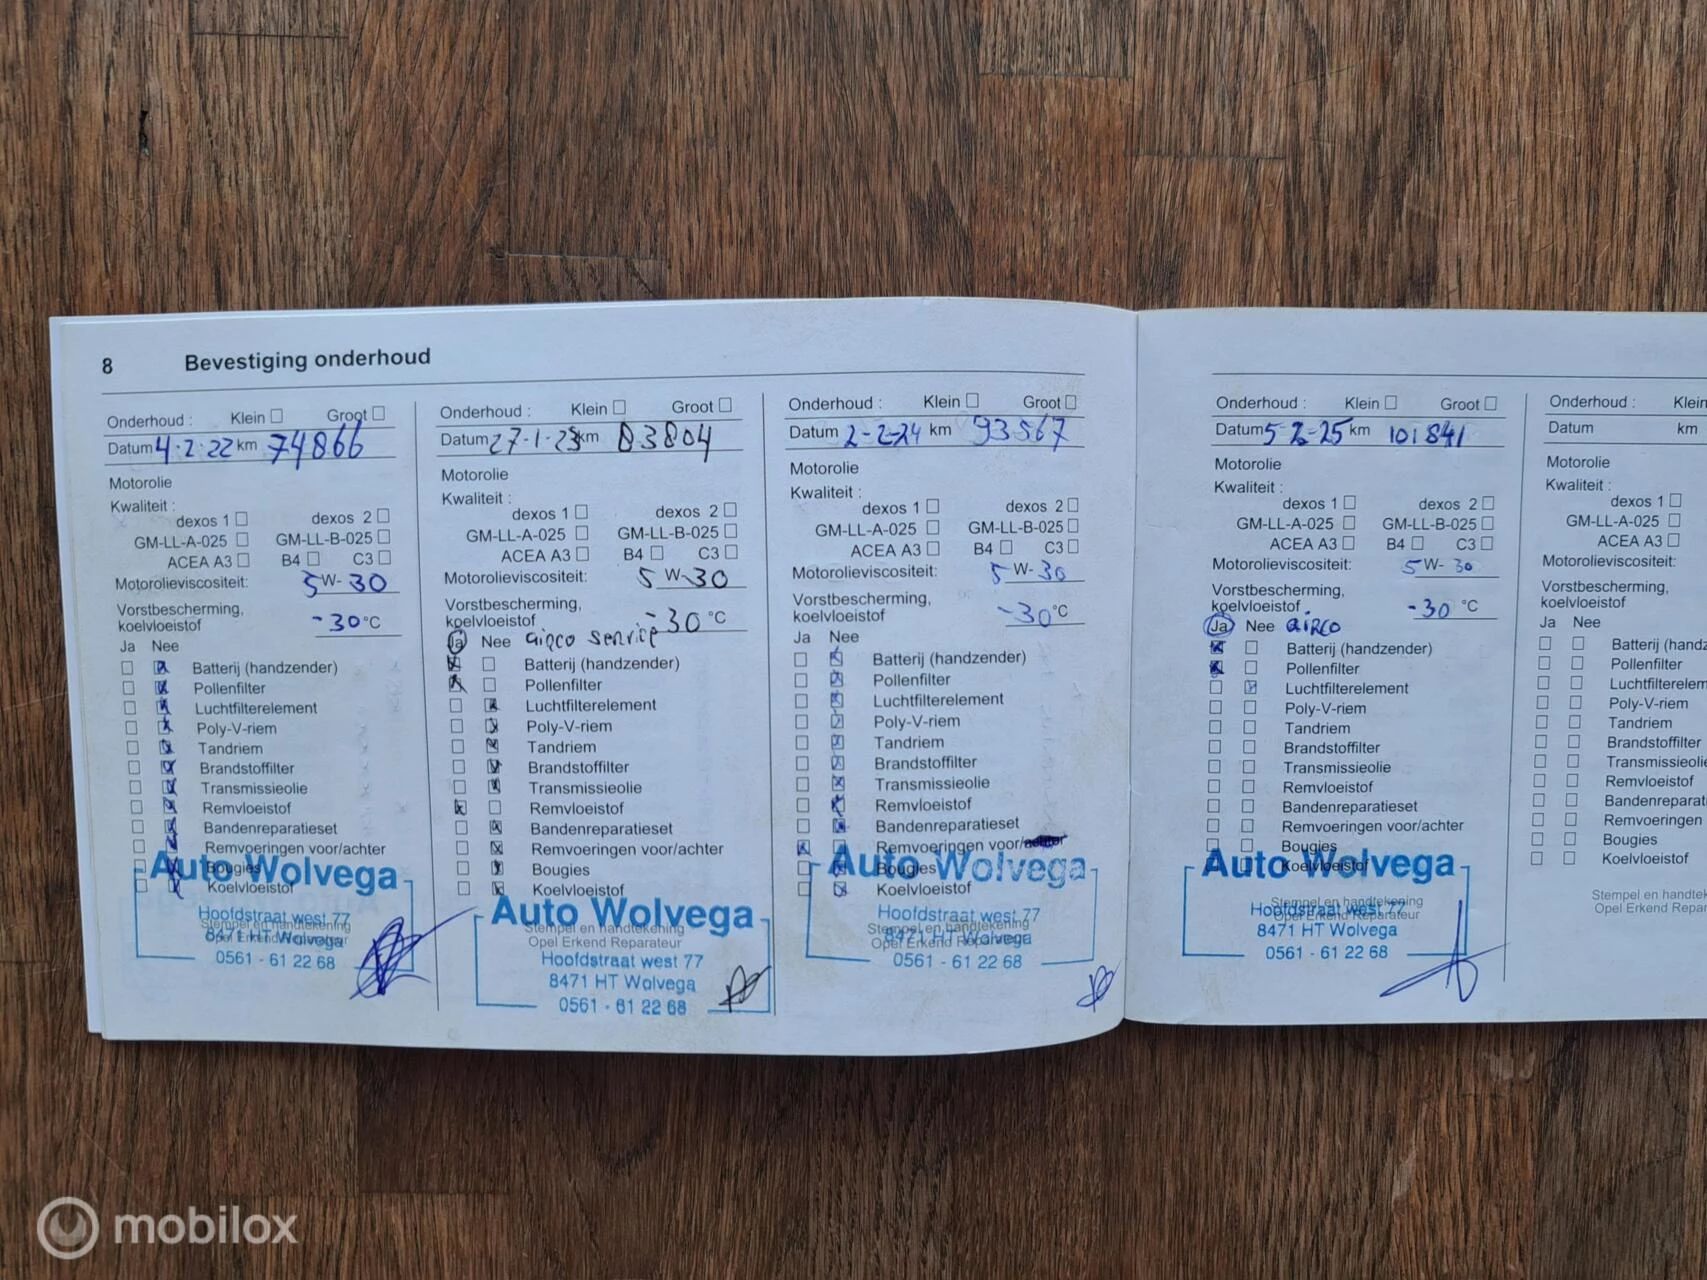 8 Bevestiging onderhoud
Onderhoud : Klein Groot
Datum 4-2-22 km 74866
Motorolie
Kwaliteit :
dexos 1 dexos 2
GM-LL-A-025 GM-LL-B-025
ACEA A3 B4 C3
Motorolieviscositeit: 5 W- 30
Vorstbescherming,
koelvloeistof -30 °C
Ja Nee
Batterij (handzender)
Pollenfilter
Luchtfilterelement
Poly-V-riem
Tandriem
Brandstoffilter
Transmissieolie
Remvloeistof
Bandenreparatieset
Remvoeringen voor/achter
Bougies
Koelvloeistof
Auto Wolvega
Stempel en handtekening
Opel Erkend Reparateur
Hoofdstraat west 77
8471 HT Wolvega
0561 - 61 22 68
Onderhoud : Klein Groot
Datum 27-1-23 km 83804
Motorolie
Kwaliteit :
dexos 1 dexos 2
GM-LL-A-025 GM-LL-B-025
ACEA A3 B4 C3
Motorolieviscositeit: 5 W- 30
Vorstbescherming,
koelvloeistof -30 °C
Ja Nee airco service
Batterij (handzender)
Pollenfilter
Luchtfilterelement
Poly-V-riem
Tandriem
Brandstoffilter
Transmissieolie
Remvloeistof
Bandenreparatieset
Remvoeringen voor/achter
Bougies
Koelvloeistof
Auto Wolvega
Stempel en handtekening
Opel Erkend Reparateur
Hoofdstraat west 77
8471 HT Wolvega
0561 - 61 22 68
Onderhoud : Klein Groot
Datum 2-2-24 km 93567
Motorolie
Kwaliteit :
dexos 1 dexos 2
GM-LL-A-025 GM-LL-B-025
ACEA A3 B4 C3
Motorolieviscositeit: 5 W- 30
Vorstbescherming,
koelvloeistof -30 °C
Ja Nee
Batterij (handzender)
Pollenfilter
Luchtfilterelement
Poly-V-riem
Tandriem
Brandstoffilter
Transmissieolie
Remvloeistof
Bandenreparatieset
Remvoeringen voor/achter
Bougies
Koelvloeistof
Auto Wolvega
Stempel en handtekening
Opel Erkend Reparateur
Hoofdstraat west 77
8471 HT Wolvega
0561 - 61 22 68
Onderhoud : Klein Groot
Datum 5 2-25 km 101841
Motorolie
Kwaliteit :
dexos 1 dexos 2
GM-LL-A-025 GM-LL-B-025
ACEA A3 B4 C3
Motorolieviscositeit: 5 W- 30
Vorstbescherming,
koelvloeistof -30 °C
Ja Nee airco
Batterij (handzender)
Pollenfilter
Luchtfilterelement
Poly-V-riem
Tandriem
Brandstoffilter
Transmissieolie
Remvloeistof
Bandenreparatieset
Remvoeringen voor/achter
Bougies
Koelvloeistof
Auto Wolvega
Stempel en handtekening
Opel Erkend Reparateur
Hoofdstraat west 77
8471 HT Wolvega
0561 - 61 22 68
Onderhoud : Klein
Datum km
Motorolie
Kwaliteit :
dexos 1
GM-LL-A-025
ACEA A3
Motorolieviscositeit:
Vorstbescherming,
koelvloeistof
Ja Nee
Batterij (handz
Pollenfilter
Luchtfilterelem
Poly-V-riem
Tandriem
Brandstoffilter
Transmissieolie
Remvloeistof
Bandenreparati
Remvoeringen
Bougies
Koelvloeistof
Stempel en handteke
Opel Erkend Repar
mobilox